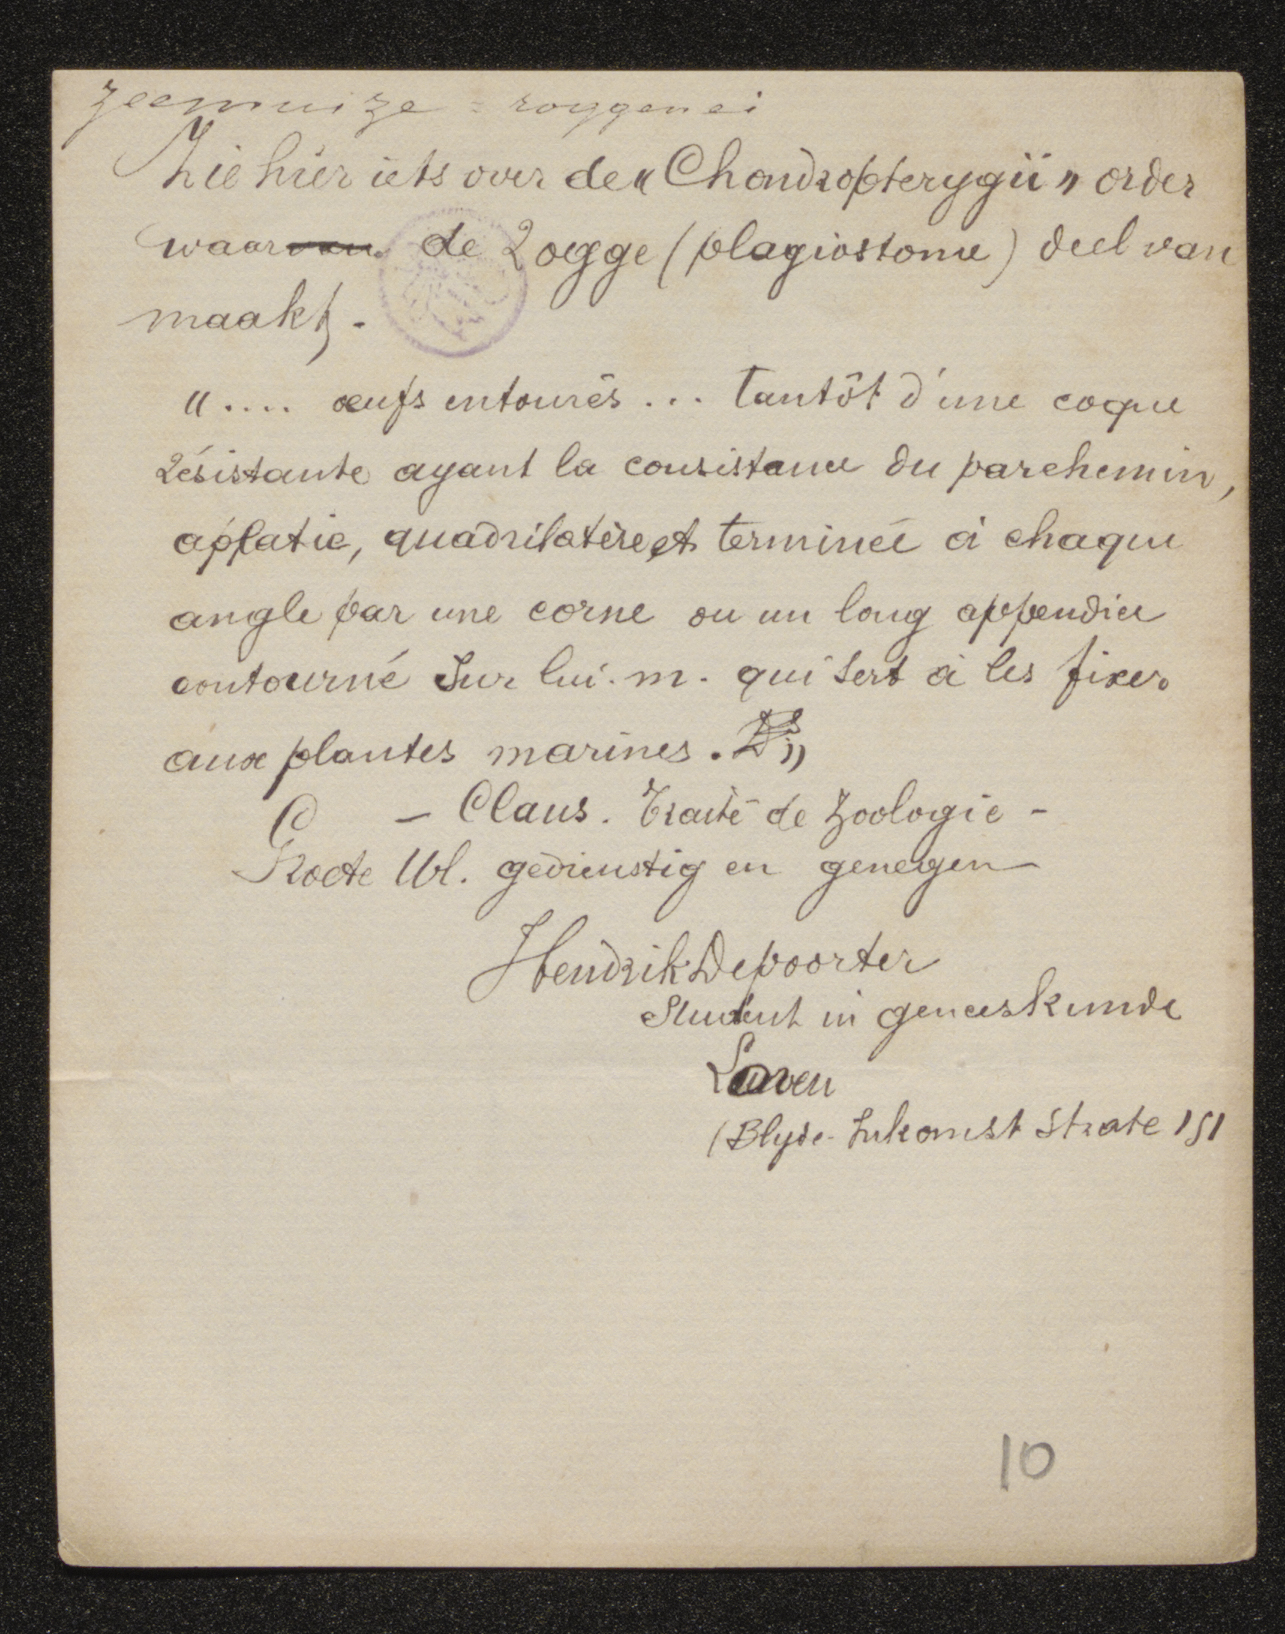 zeemuize = roggenei
Zie hier iets over de « Chondropterygii » order
waar de Rogge (plagiostome) deel van
maakt. -
« .... œufs entourés ... tantôt d'une coque
résistante ayant la consistance du parchemin,
applatie, quadrilatère et terminée à chaque
angle par une corne ou un long appendice
contourné sur lui. m. qui sert à les fixer
aux plantes marines. »
- Claus. Traité de Zoologie -
Groete Ul. gedienstig en genegen
Hendrik Depoorter
Student in geneeskunde
Loven
(Blyde-Inkomst strate 151
10